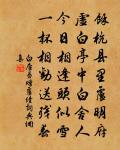 餘杭縣里盧明府
虛白亭中白舍人
今日相逢頭似雪
一杯相勸送殘春
白居易